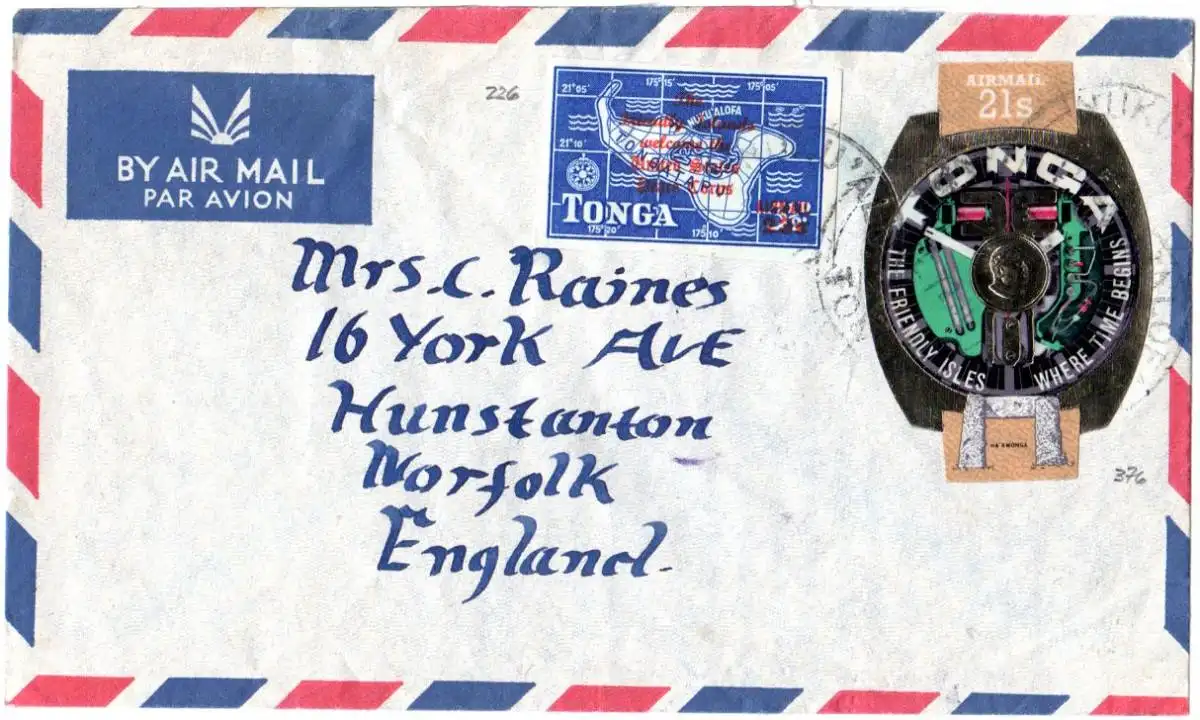 BY AIR MAIL
PAR AVION
226
21°05' 175°15' 175°05'
NUKU'ALOFA
21°10'
The
Friendly Islands
welcome the
United States
Peace Corps
TONGA
175°20' 175°10'
AIRMAIL
21s
TONGA
THE FRIENDLY ISLES WHERE TIME BEGINS
HA'AMONGA
376
Mrs. C. Raines
16 York AvE
Hunstanton
Norfolk
England.